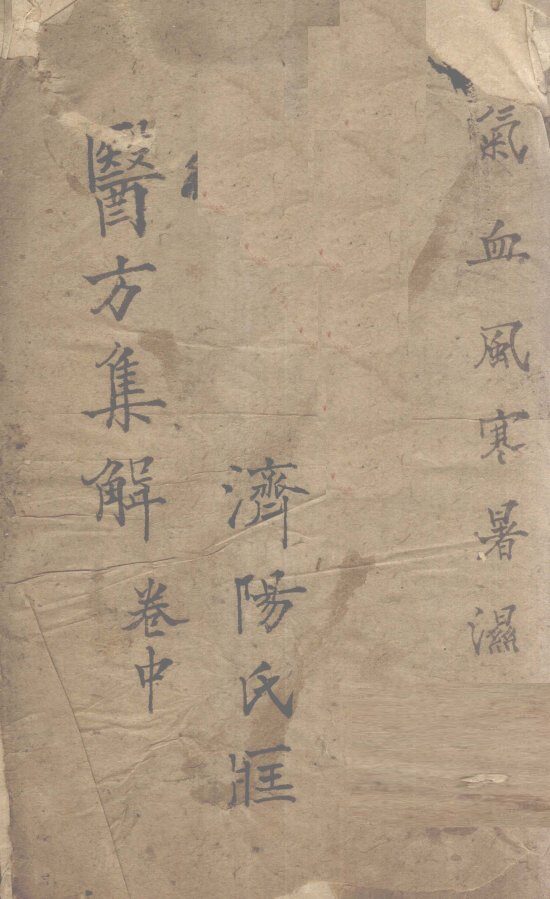 氣血風寒暑濕
濟陽氏
醫方集觧
卷中